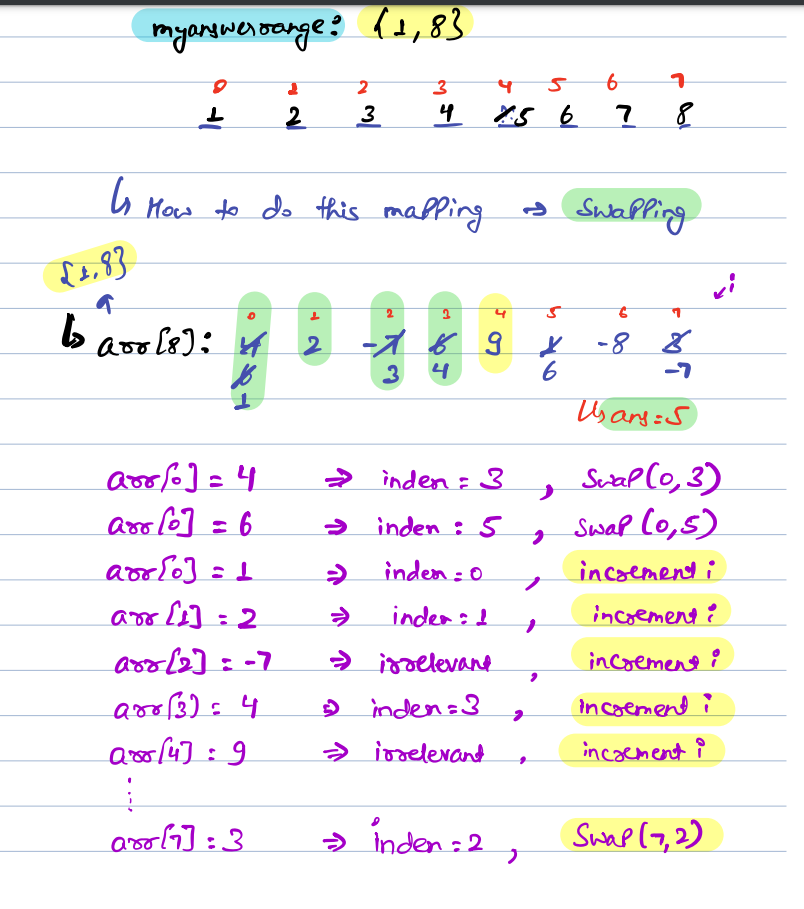 myanswerrange: {1,8}
0 1 2 3 4 5 6 7
1 2 3 4 5 6 7 8
↳ How to do this mapping → Swapping
{1,8}
i
0 1 2 3 4 5 6 7
↳ arr[8]: 4 2 -7 6 9 1 -8 3
6 3 4 6 -7
1
↳ ans=5
arr[0] = 4 ⇒ index = 3 , Swap(0,3)
arr[0] = 6 ⇒ index : 5 , Swap (0,5)
arr[0] = 1 ⇒ index = 0 , increment i
arr[1] = 2 ⇒ index : 1 , increment i
arr[2] = -7 ⇒ irrelevant , increment i
arr[3] = 4 ⇒ index = 3 , increment i
arr[4] : 9 ⇒ irrelevant , increment i
⋮
arr[7] = 3 ⇒ index = 2 , Swap(7,2)